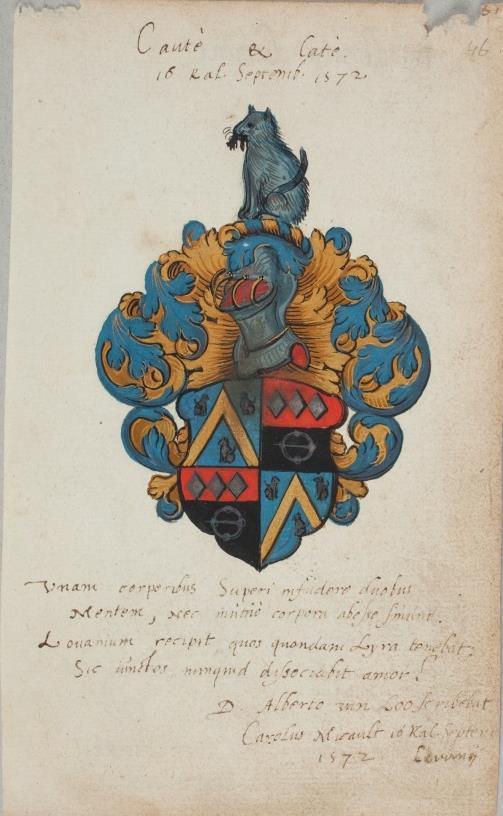 46
Cautè & Catè.
16 Kal. Septemb. 1572
Vnam corporibus Superi infudere duobus
Mentem, nec mutuò corpora abesse sinunt.
Lovanium recipit quos quondam Lyra tenebat,
Sic iunctos nunquid dissociabit amor?
D. Alberto zun Loo scribebat
Carolus Micault 16 Kal. Septem
1572 Lovanij